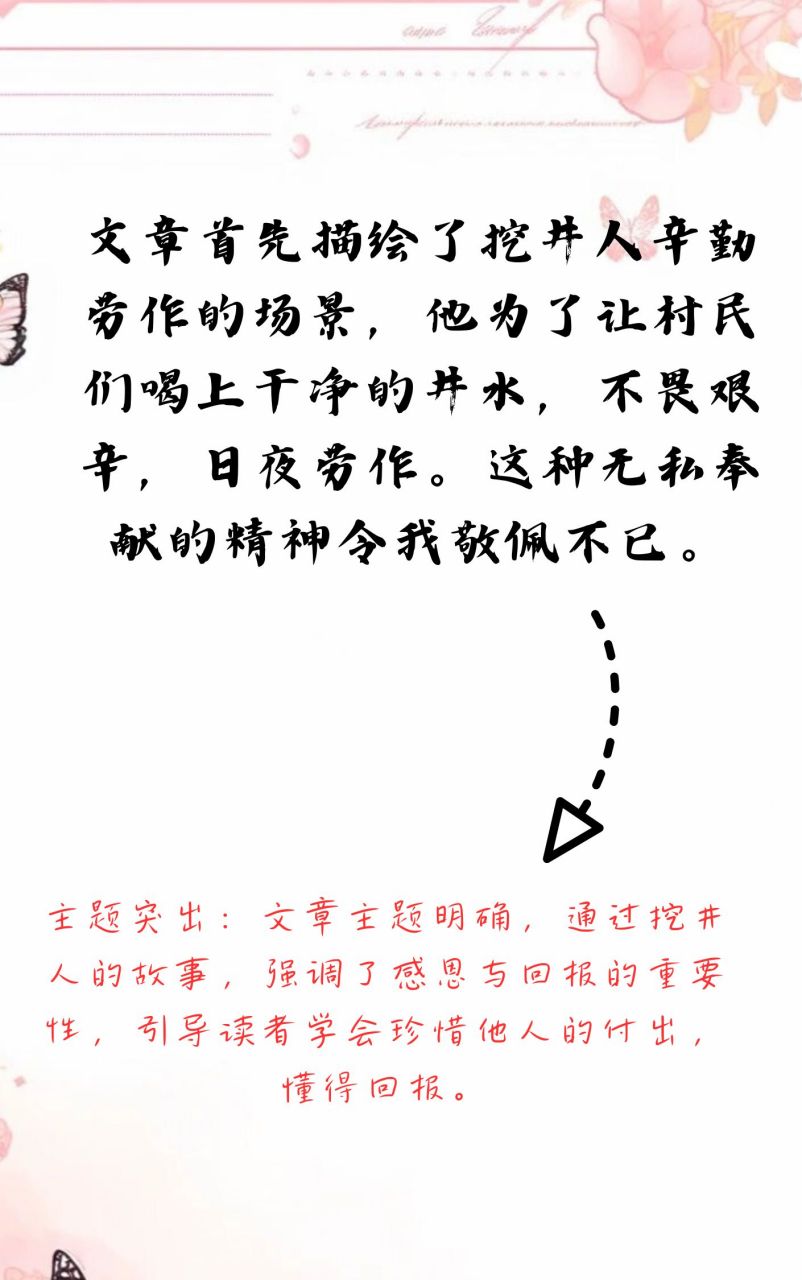 文章首先描绘了挖井人辛勤
劳作的场景，他为了让村民
们喝上干净的井水，不畏艰
辛，日夜劳作。这种无私奉
献的精神令我敬佩不已。
主题突出：文章主题明确，通过挖井
人的故事，强调了感恩与回报的重要
性，引导读者学会珍惜他人的付出，
懂得回报。